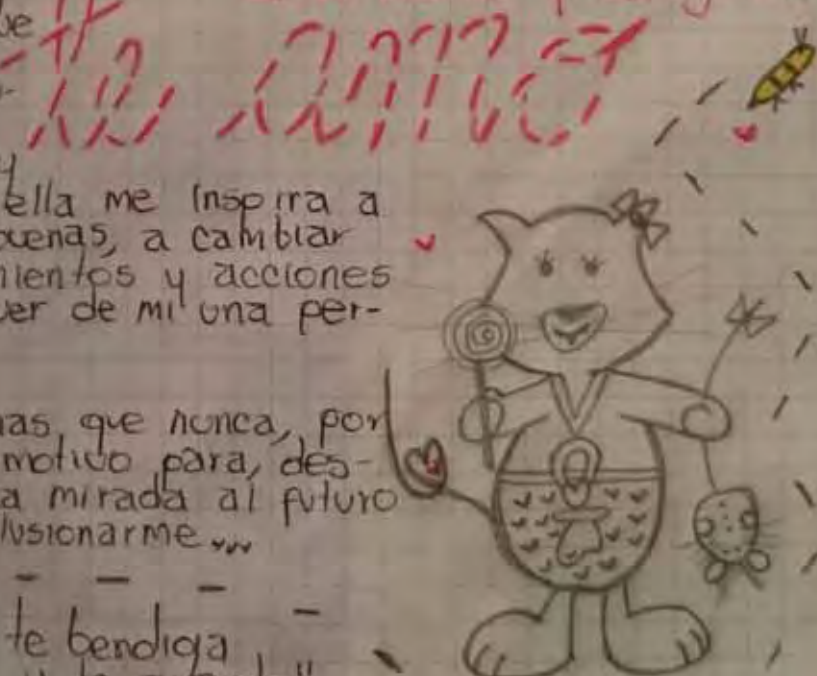 te amo
ella me inspira a
buenas, a cambiar
mientos y acciones
er de mi una per-
mas que nunca, por
motivo para, des-
a mirada al futuro
lusionarme
te bendiga